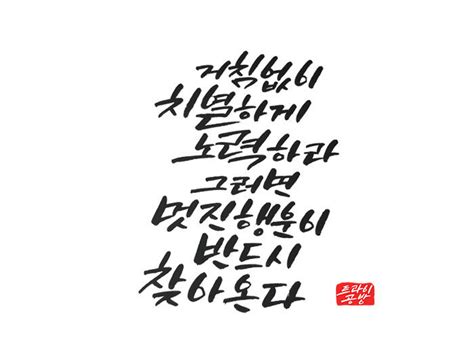 거침없이
치열하게
노력하라
그러면
멋진행운이
반드시
찾아온다
트라이
공방